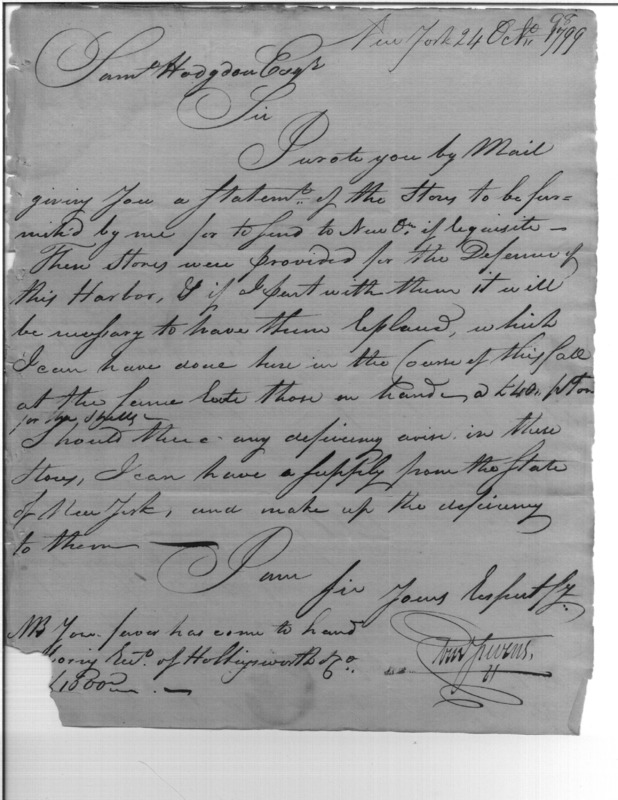 New York 24 Octo. 1799
98
Saml. Hodgdon Esqr
Sir
I wrote you by Mail
giving you a Statemt. of the Stores to be fur=
nish'd by me for to send to New Or. if requisite –
These Stores were provided for the Defence of
this Harbor, & if I part with them it will
be necessary to have them replaced, which
I can have done here in the Course of this Fall
at the same rate those on hand @ £40. p Ton
for the Shells –
Should there any deficiency arise in these
Stores, I can have a supply from the State
of New York, and make up the deficiency
to them —
I am Sir Yours Respectfy.
NB Your favor has come to hand
Rect. of Hollingsworth & Co.
1800 –
Eben Stevens.